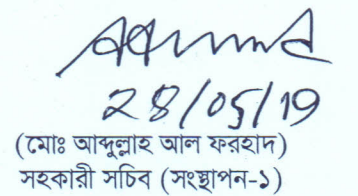 28/05/19
(মোঃ আব্দুল্লাহ আল ফরহাদ)
সহকারী সচিব (সংস্থাপন-১)